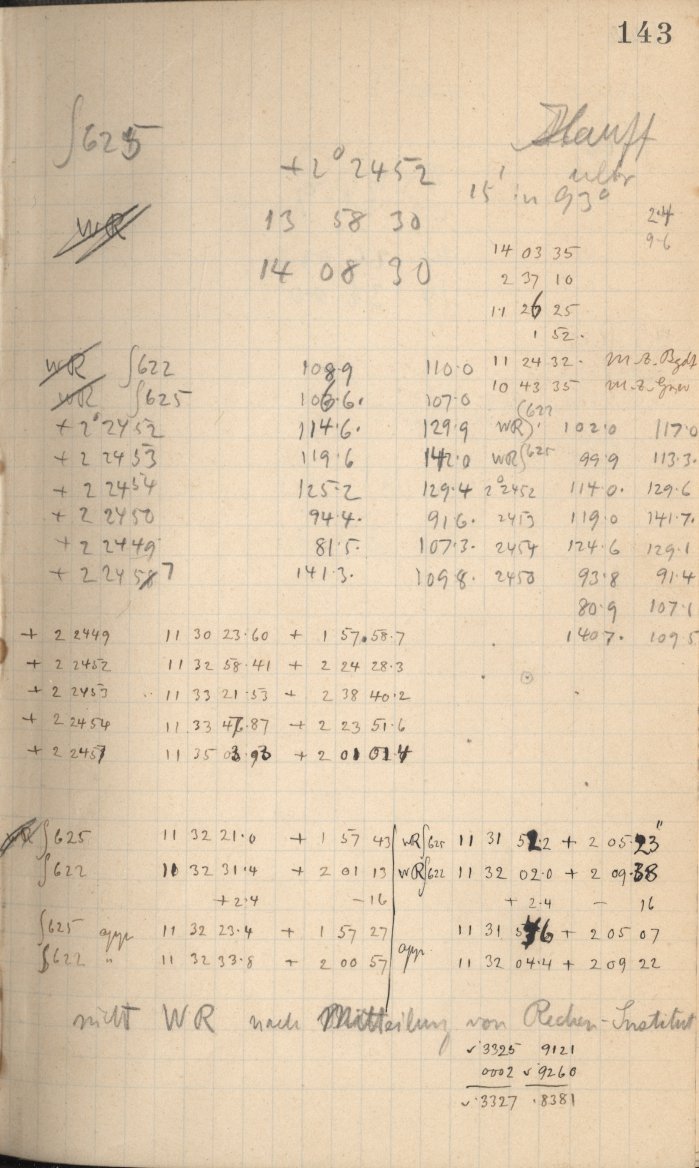 143
∫625
Hauff
+2° 2452
ultr
15' in 93°
WR
13 58 30
2.4
9.6
14 08 30
14 03 35
2 37 10
11 26 25
1 52.
WR ∫622 108.9 110.0
11 24 32. M.Z. Bgdf
WR ∫625 106.6. 107.0
10 43 35 M.Z. Grw
+2° 2452 114.6. 129.9
WR ∫622 102.0 117.0
+2 2453 119.6 142.0
WR ∫625 99.9 113.3.
+2 2454 125.2 129.4
2° 2452 114.0. 129.6
+2 2450 94.4. 91.6.
2453 119.0 141.7.
+2 2449 81.5. 107.3.
2454 124.6 129.1
+2 2457 141.3. 109.8.
2450 93.8 91.4
80.9 107.1
140.7. 109.5
+ 2 2449 11 30 23.60 + 1 57 58.7
+ 2 2452 11 32 58.41 + 2 24 28.3
+ 2 2453 .. 11 33 21.53 + 2 38 40.2
+ 2 2454 11 33 47.87 + 2 23 51.6
+ 2 2457 11 35 03.93 + 2 01 01.4
WR ∫625 11 32 21.0 + 1 57 43
WR ∫625 11 31 52.2 + 2 05 23"
∫622 11 32 31.4 + 2 01 13
WR ∫622 11 32 02.0 + 2 09.38
+2.4 -16
+ 2.4 - 16
∫625 app. 11 32 23.4 + 1 57 27
app. 11 31 54.6 + 2 05 07
∫622 " 11 32 33.8 + 2 00 57
11 32 04.4 + 2 09 22
nicht WR nach Mitteilung von Rechen-Institut
√.3325 9121
0002 √.9260
√.3327 .8381